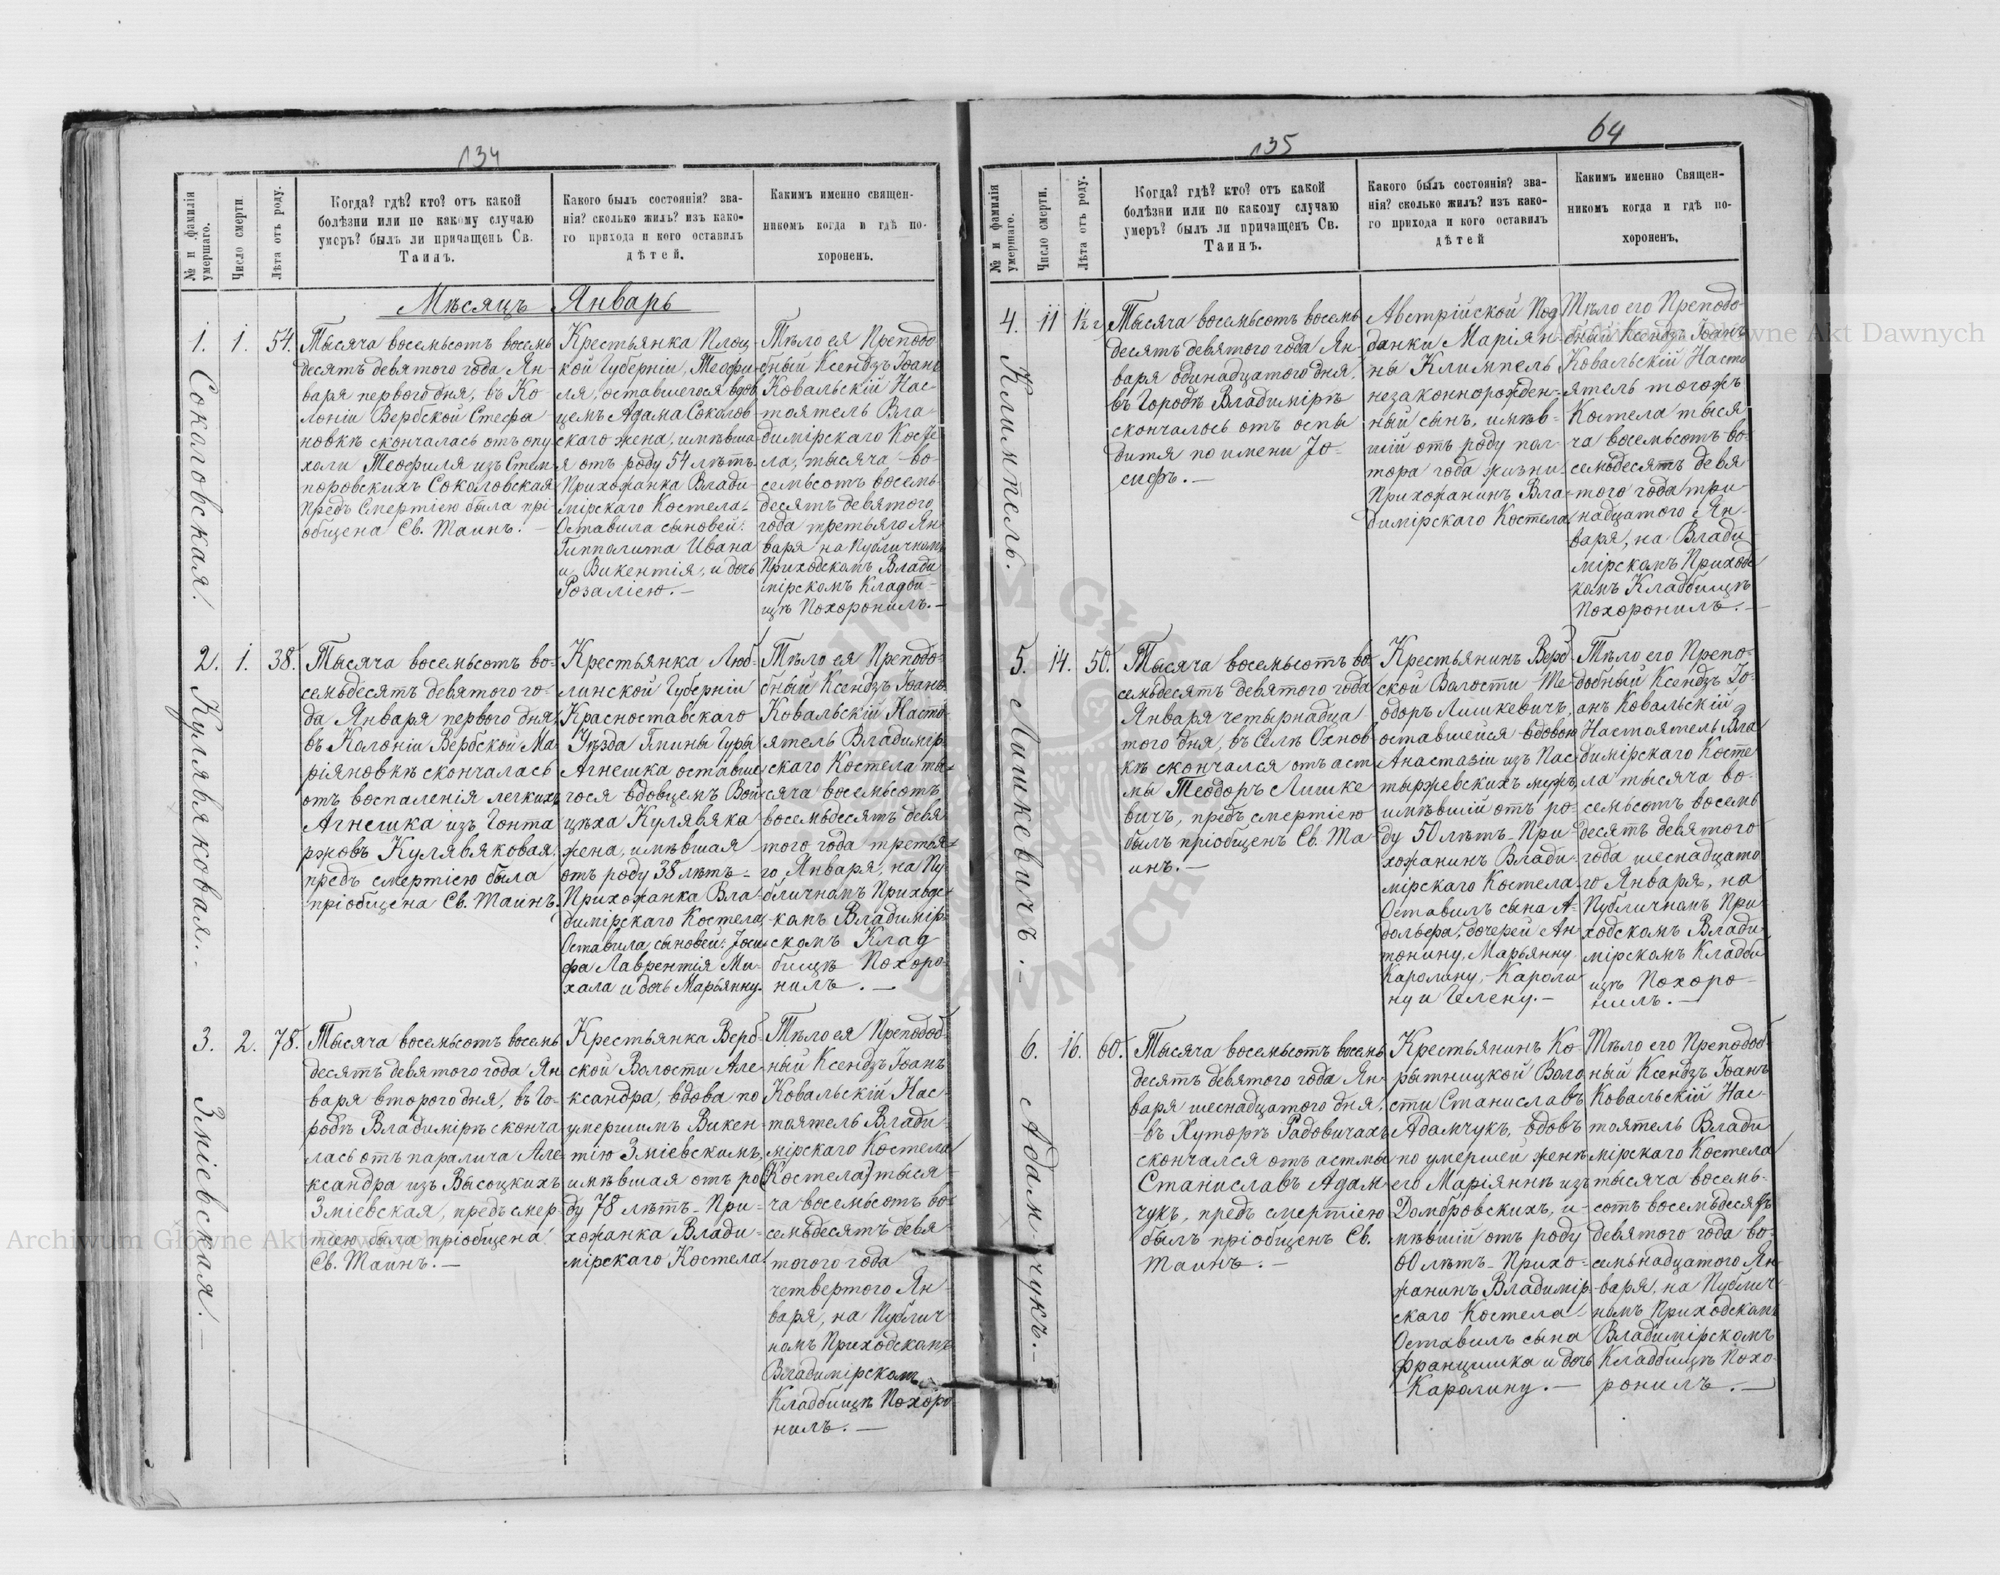 134
№ и фамилія умершаго.
Число смерти.
Лѣта отъ роду.
Когда? гдѣ? кто? отъ какой
болѣзни или по какому случаю
умеръ? былъ ли причащенъ Св.
Таинъ.
Какого былъ состоянія? зва-
нія? сколько жилъ? изъ како-
го прихода и кого оставилъ
дѣтей.
Какимъ именно священ-
никомъ когда и гдѣ по-
хороненъ.
Мѣсяцъ Январь
1.
Соколовская.
1.
54.
Тысяча восемьсотъ восемь
десятъ девятого года Ян-
варя первого дня, въ Ко-
лоніи Вербской Стефа
новкѣ скончалась отъ опу
холи Теофиля изъ Стем
поровскихъ Соколовская
предъ Смертію была прі
общена Св. Таинъ. —
Крестьянка Плоц
кой Губерніи, Теофи-
ля, оставшегося вдов
цемъ Адама Соколов
скаго жена, имѣвша-
я отъ роду 54 лѣтъ
Прихожанка Влади-
мірскаго Костела
Оставила сыновей:
Гипполита Ивана
и Викентія, и дочь
Розалію. —
Тѣло ея Преподо
бный Ксендзъ Іоанъ
Ковальскій Нас-
тоятель Вла-
димірскаго Косте
ла, тысяча во-
семьсотъ восемь
десятъ девятого
года третьяго Ян
варя на Публичномъ
Приходскомъ Влади
мірскомъ Кладби-
щѣ Похоронилъ. —
2.
Кулявяковая.
1.
38.
Тысяча восемьсотъ во-
семьдесятъ девятого го-
да Января первого дня,
въ Колоніи Вербской Ма-
ріяновкѣ скончалась
отъ воспаленія легкихъ
Агнешка изъ Гонта
ржовъ Кулявяковая,
предъ смертію была
пріобщена Св. Таинъ.
Крестьянка Люб-
линской Губерніи
Красноставскаго
Уѣзда Гмины Гуры
Агнешка оставше
гося вдовцемъ Вой
цѣха Кулявяка
жена, имѣвшая
отъ роду 38 лѣтъ-
Прихожанка Вла-
димірскаго Костела,
Оставила сыновей: Іоси
фа Лаврентія Ми-
хала и дочь Марьянну.
Тѣло ея Преподо-
бный Ксендзъ Іоанъ
Ковальскій Насто-
ятель Владимір
скаго Костела ты-
сяча восемьсотъ
восемьдесятъ девя
того года третья-
го Января, на Пу-
бличномъ Приходс-
комъ Владимір-
скомъ Клад-
бищѣ Похоро-
нилъ. —
3.
Зміевская. —
2.
78.
Тысяча восемьсотъ восемь
десятъ девятого года Ян
варя второго дня, въ Го-
родѣ Владимірѣ сконча
лась отъ паралича Але
ксандра изъ Высоцкихъ
Зміевская, предъ смер
тію была пріобщена
Св. Таинъ. —
Крестьянка Верб
ской Волости Але
ксандра, вдова по
умершимъ Викен-
тію Зміевскомъ,
имѣвшая отъ ро
ду 78 лѣтъ- При-
хожанка Влади-
мірскаго Костела.
Тѣло ея Преподоб-
ный Ксендзъ Іоанъ
Ковальскій Нас-
тоятель Влади-
мірскаго Костела
(Костела) тыся-
ча восемьсотъ во-
семьдесятъ девя
того года
четвертого Ян-
варя, на Публич-
номъ Приходскомъ
Владимірскомъ
Кладбищѣ Похоро
нилъ. —
135
64
№ и фамилія умершаго.
Число смерти.
Лѣта отъ роду.
Когда? гдѣ? кто? отъ какой
болѣзни или по какому случаю
умеръ? былъ ли причащенъ Св.
Таинъ.
Какого былъ состоянія? зва-
нія? сколько жилъ? изъ како-
го прихода и кого оставилъ
дѣтей
Какимъ именно Священ-
никомъ когда и гдѣ по-
хороненъ.
4.
Климпель.
11
1½
Тысяча восемьсотъ восемь
десятъ девятого года Ян
варя одинадцатого дня,
въ Городѣ Владимірѣ
скончалось отъ оспы
дитя по имени Іо-
сифъ. —
Австрійской Под
данки Маріян-
ны Климпель
незаконнорожден-
ный сынъ, имѣв-
шій отъ роду пол-
тора года жизни
Прихожанинъ Вла-
димірскаго Костела
Тѣло его Преподо-
бный Ксендзъ Іоанъ
Ковальскій Насто
ятель тогожъ
Костела тыся
ча восемьсотъ во-
семьдесятъ девя
того года три
надцатого Ян-
варя, на Влади
мірскомъ Приходс
комъ Кладбищѣ
Похоронилъ. —
5.
Лишкевичъ. —
14.
50.
Тысяча восемьсотъ во
семьдесятъ девятого года
Января четырнадца
того дня, въ Селѣ Охнов
кѣ скончался отъ аст
мы Теодоръ Лишке
вичъ, предъ смертію
былъ пріобщенъ Св. Та
инъ. —
Крестьянинъ Верб
ской Волости Те-
одоръ Лишкевичъ,
оставшейся вдовою
Анастазіи изъ Пас
тыржевскихъ мужъ,
имѣвшій отъ ро-
ду 50 лѣтъ- При-
хожанинъ Влади-
мірскаго Костела-
Оставилъ сына А-
дольфа, дочерей Ан
тонину, Марьянну
Каролину, Кароли
ну и Гелену. —
Тѣло его Препо-
добный Ксендзъ Іо-
анъ Ковальскій
Настоятель Вла
димірскаго Косте
ла тысяча во-
семьсотъ восемь
десятъ девятого
года шеснадцато
го Января, на
Публичномъ При
ходскомъ Влади-
мірскомъ Кладби
щѣ Похоро-
нилъ. —
6.
Адамчукъ. —
16.
60.
Тысяча восемьсотъ восемь
десятъ девятого года Ян
варя шеснадцатого дня,
въ Хуторѣ Радовичахъ
скончался отъ астмы
Станиславъ Адам
чукъ, предъ смертію
былъ пріобщенъ Св.
Таинъ. —
Крестьянинъ Ко-
рытницкой Воло
сти Станиславъ
Адамчукъ, вдовъ
по умершей женѣ
его Маріяннѣ изъ
Домбровскихъ, и-
мѣвшій отъ роду
60 лѣтъ- Прихо-
жанинъ Владимір-
скаго Костела
Оставилъ сына
Францишка и дочь
Каролину. —
Тѣло его Преподоб
ный Ксендзъ Іоанъ
Ковальскій Нас-
тоятель Влади
мірскаго Костела
тысяча восемь-
сотъ восемьдесятъ
девятого года во-
семьнадцатого Ян
варя, на Публич-
номъ Приходскомъ
Владимірскомъ
Кладбищѣ Похо-
ронилъ. —
Archiwum Główne Akt Dawnych
Główne Akt Dawnych